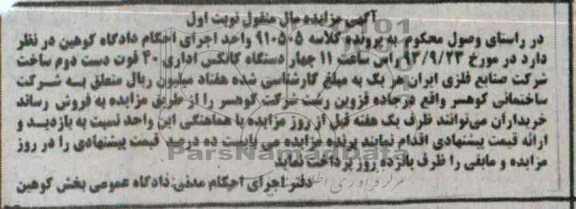 آگهی مزایده مال منقول نوبت اول
در راستای وصول محکوم به پرونده کلاسه 910505 واحد اجرای احکام دادگاه کوهین در نظر
دارد در مورخ 93/9/23 راس ساعت 11 چهار دستگاه کانکس اداری 40 فوت دست دوم ساخت
شرکت صنایع فلزی ایران هر یک به مبلغ کارشناسی شده هفتاد میلیون ریال متعلق به شرکت
ساختمانی کوهسر واقع در جاده قزوین رشت شرکت کوهسر را از طریق مزایده به فروش رساند
خریداران می‌توانند ظرف یک هفته قبل از روز مزایده با هماهنگی این واحد نسبت به بازدید و
ارائه قیمت پیشنهادی اقدام نمایند برنده مزایده می بایست ده درصد قیمت پیشنهادی را در روز
مزایده و مابقی را ظرف پانزده روز پرداخت نماید
دفتر اجرای احکام مدنی دادگاه عمومی بخش کوهین